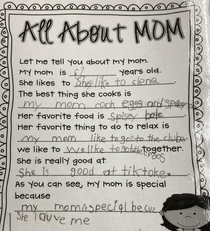 All About MOM
Let me tell you about my mom.
My mom is years old.
She likes to She like to
The best thing she cooks is
my mom cock eggs and
Her favorite food is spisey
Her favorite thing to do to relax is
my mom like to go to the clube
we like to We like to together.
She is really good at
She is good at tiktoke.
As you can see, my mom is special
because
my mom is special becu
She love me